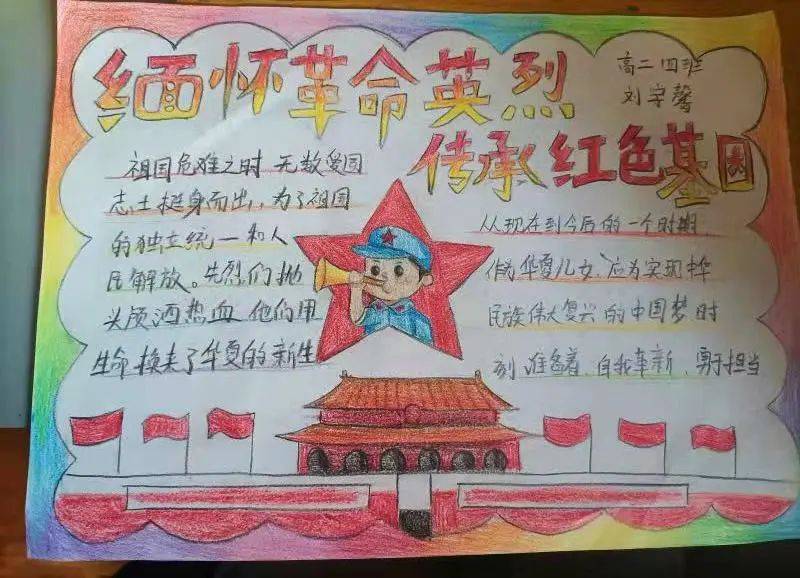 缅怀革命英烈
高二四班
刘宇馨
传承红色基因
祖国危难之时 无数爱国
志士挺身而出，为了祖国
的独立统一和人
民解放。先烈们抛
头颅洒热血 他们用
生命换来了华夏的新生
从现在到今后的一个时期，
作为华夏儿女，应为实现中华
民族伟大复兴的中国梦时
刻准备着，自我革新，勇于担当